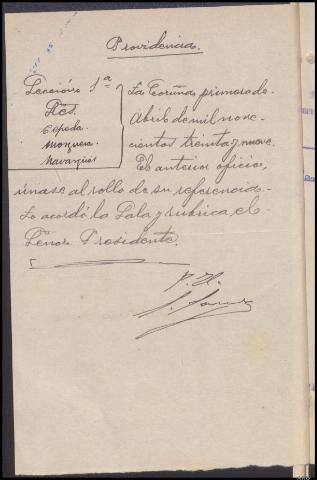 Providencia.
Sección 1ª
Sres.
Cepeda.
Mosquera
Navarajos
La Coruña primero de
Abril de mil nove-
cientos treinta y nueve.
El anterior oficio,
únase al rollo de su referencia.
Lo acordó la Sala y rubrica el
Señor Presidente.